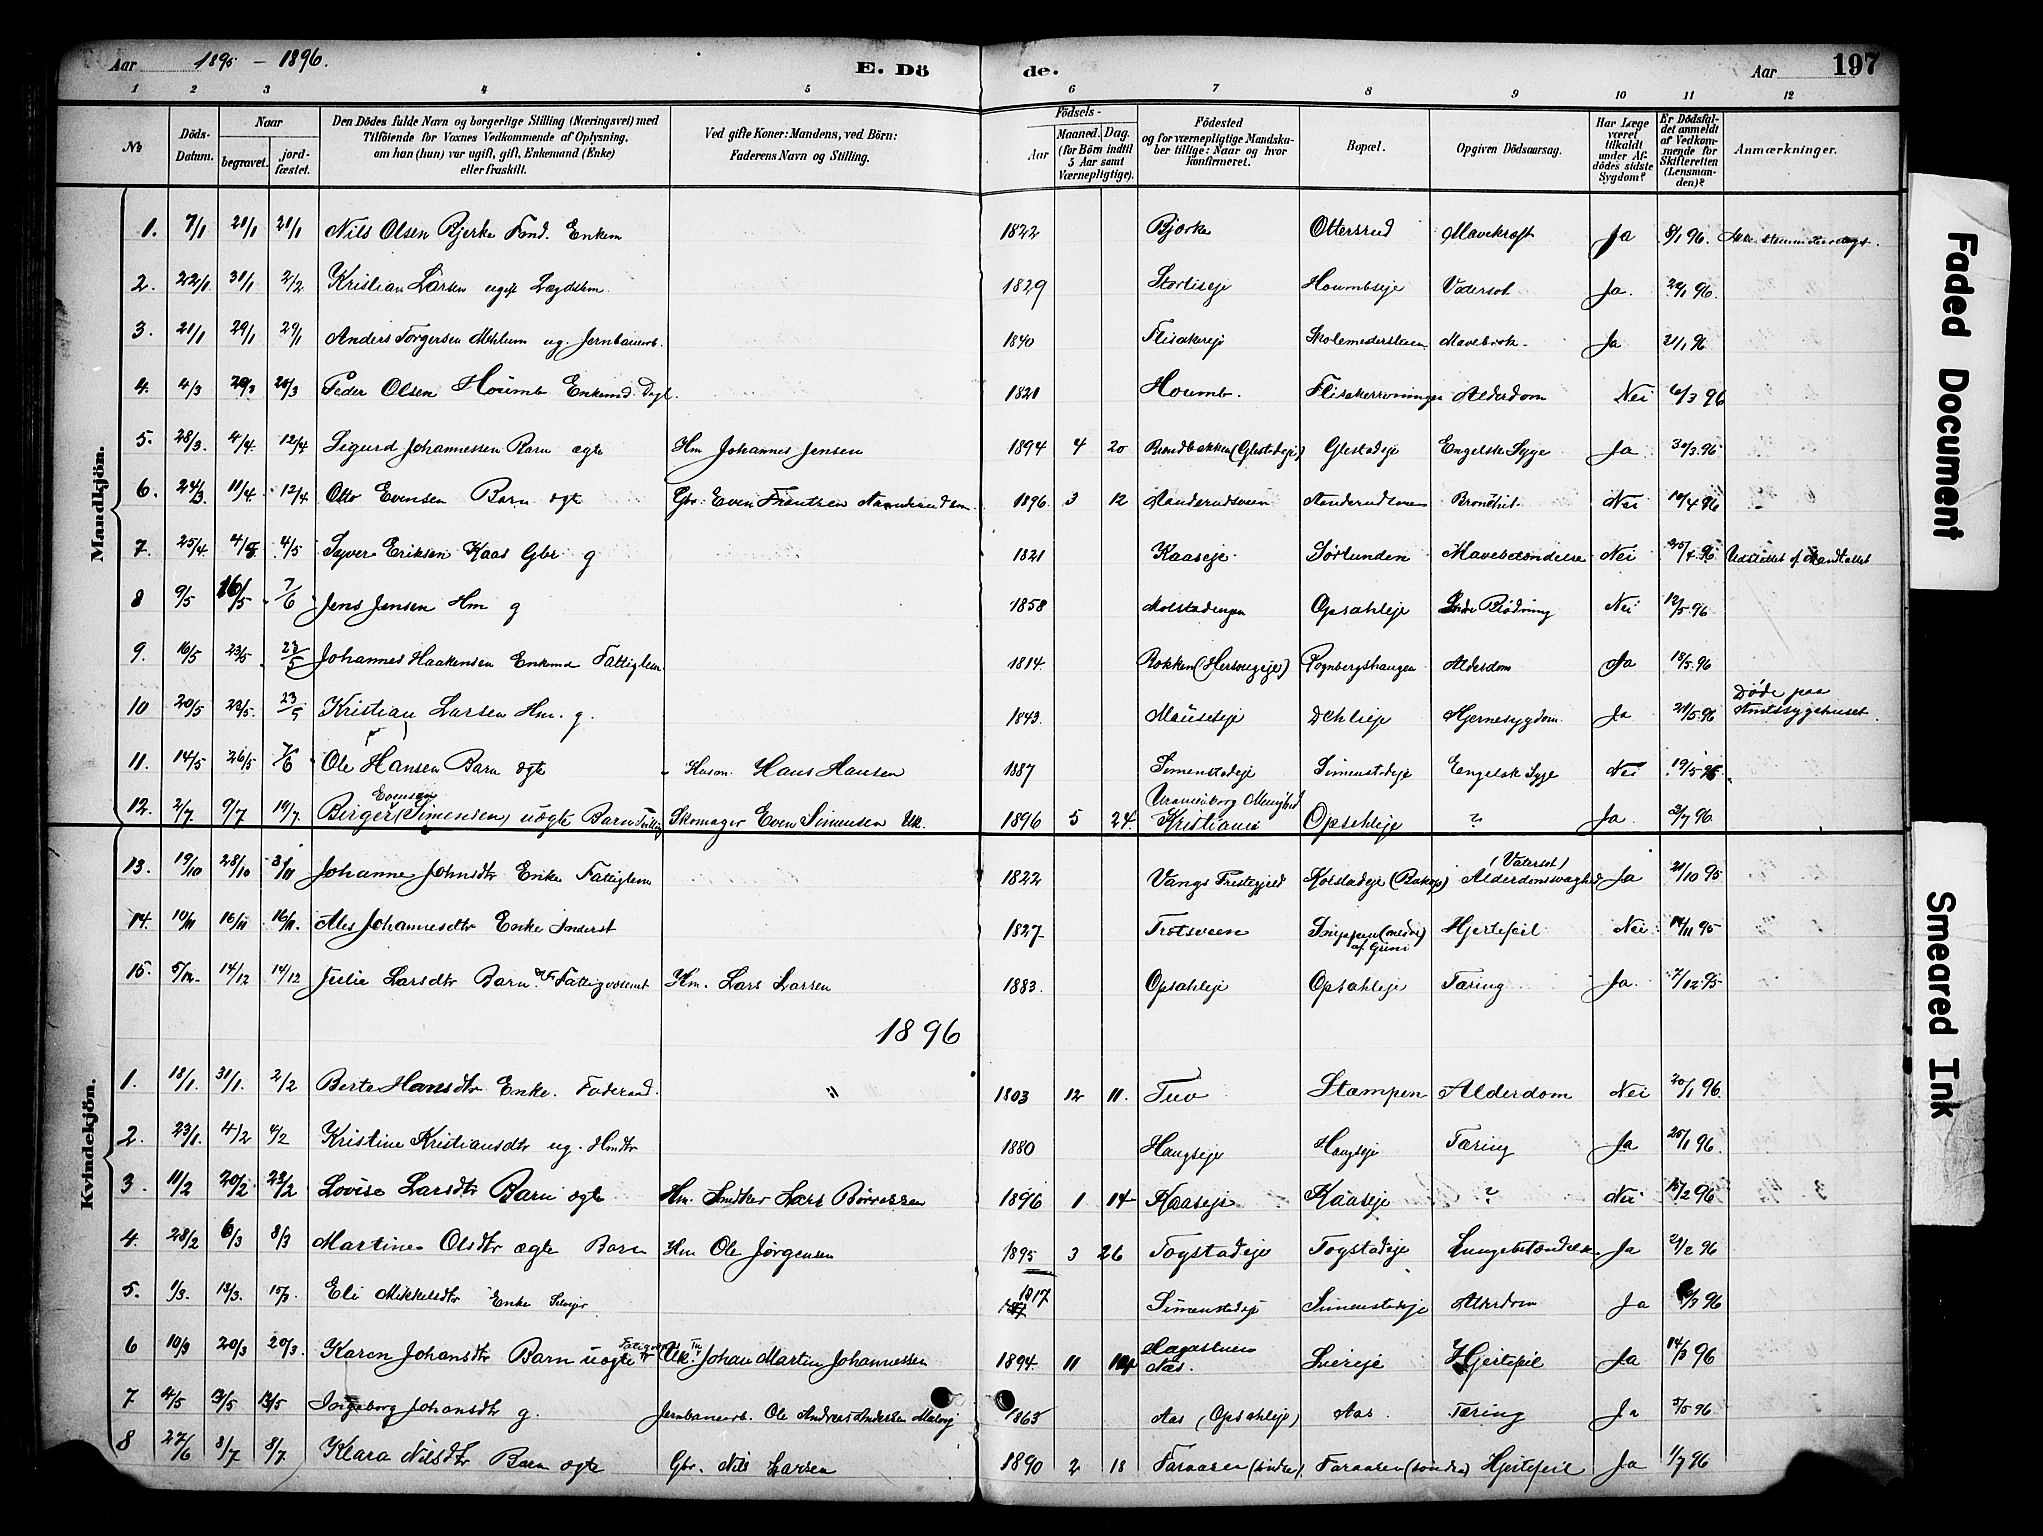 Aar 1895 – 1896.
E. Döde.
Aar
197
1 2 3 4 5 6 7 8 9 10 11 12
№
Döds-Datum.
Naar
begravet. jord-fæstet.
Den Dödes fulde Navn og borgerlige Stilling (Næringsvei) med
Tilföiende for Voxnes Vedkommende af Oplysning,
om han (hun) var ugift, gift, Enkemand (Enke)
eller fraskilt.
Ved gifte Koner: Mandens, ved Börn:
Faderens Navn og Stilling.
Födsels-
Aar Maaned. Dag.
(for Börn indtil
5 Aar samt
Værnepligtige).
Födested
og for værnepligtige Mandska-
ber tillige: Naar og hvor
konfirmeret.
Bopæl.
Opgiven Dödsaarsag.
Har Læge
været
tilkaldt
under Af-
dödes sidste
Sygdom?
Er Dödsfal-
det anmeldt
af Vedkom-
mende for
Skifteretten
(Lensman-
den)?
Anmærkninger.
Mandkjön.
1. 7/1 21/1 21/1 Nils Olsen Bjerke Fød. Enkem 1822 Bjørke Ottersrud Mavekræft Ja 8/1 96.
2. 22/1 31/1 2/2 Kristian Larsen ugift Lægdslem. 1829 Houmbseje Vatersot Ja. 22/1 96.
3. 21/1 29/1 29/1 Anders Torgersen Mehlum ug. Jernbanearb. 1840 Flisakereje Mavebrok. Ja 21/1 96
4. 4/3 20/3 20/3 Peder Olsen Houmb Enkemd. Dagl. 1821 Houmb. Alderdom Nei 6/3 96
5. 28/3. 4/4. 12/4 Sigurd Johannessen Barn ægte Hm Johannes Jensen 1894 4 20 Brendbakken (Glestadeje) Glestadeje Engelsk Syge Ja 30/3 96
6. 24/3 11/4. 12/4 Otto Evensen Barn ægte Gbr. Even Frantzen 1896 3 12 Bronchit. Nei 10/4 96
7. 25/4 4/5 4/5 Syver Eriksen Kaas Gbr g 1821 Kaaseje. Sørlunden Mavebetændelse Nei 25/4 96 Udslettet af Mandtallet
8 9/5 16/5 7/6 Jens Jensen Hm g 1858 Molstadengen Opsahleje Indre Blødning Nei 12/5 96
9. 16/5 23/5 23/5 Johannes Haakensen Enkemd Fattiglem 1814. Rokken (Hersougeje) Pognbergshaugen Alderdom Ja 18/5 96
10 20/5 23/5. 23/5 Kristian Larsen Hm. g. 1843. Mauseteje Dehlieje Hjernesygdom Ja 21/5 96 Døde paa
Amtssygehuset.
11. 14/5 26/5 7/6 Ole Hansen Barn ægte Husm. Hans Hansen 1887 Simenstadeje Simenstadeje Engelsk Syge Nei 19/5 96
12. 2/7 9/7 19/7. Birger Evensen (Simensen) uægte Barn Skomager Even Simensen Uk. 1896 5 24. Uranienborg Menighed Kristiania Opsahleje ? Ja. 3/7 96
Kvindekjön.
13. 19/10 28/10 3/11 Johanne Johnsdtr Enke Fattiglem 1822 Vangs Prestegjeld Alderdomssvaghed (Vatersot) Ja 21/10 95
14. 10/11 16/11 16/11. Ales Johannesdtr Enke Inderst 1827 Trotsveen Hjertefeil Nei 14/11 95
15. 5/12. 14/12 14/12 Julie Larsdtr Barn af Fattigvæsenet Hm. Lars Larsen 1883. Opsahleje Opsahleje Tæring Ja. 7/12 95
1896
1. 18/1. 31/1. 2/2 Berte Hansdtr Enke. Føderaad. " 1803 12 11. Tuv Stampen Alderdom Nei 20/1 96
2. 23/1. 4/2 4/2 Kristine Kristiansdtr ug. Hmdtr 1880 Haugseje Haugseje Tæring Ja 25/1 96.
3. 11/2 20/2 22/2 Lovise Larsdtr Barn ægte Hm. Snedker Lars 1896 1 14 Kaaseje Kaaseje ? Nei 15/2 96
4. 28/2 6/3 8/3 Martine Olsdtr ægte Barn Hm Ole Jørgensen 1895 3 26 Togstadeje Togstadeje Lungebetændelse Ja 2/2 96
5. 1/3. 13/3. 15/3 Eli Mikkelsdtr Enke 1817 Simenstadeje Simenstadeje Alderdom Ja /3 96
6 10/3 20/3 20/3. Karen Johansdtr Barn uægte Uk. Johan Martin Johannessen 1894. 11 14 Næs. Liereje Hjertefeil Ja 14/3 96
7 4/5 13/5 13/5 Ingeborg Johansdtr g. Jernbanearb. Ole Andreas Andersen 1863 Aas (Opsahleje) Aas Tæring Ja 5/5 96
8 27/6 8/7 8/7. Klara Nilsdtr Barn ægte Gbr. Nils Larsen 1890 2 18 Faraasen (søndre) Faraasen (søndre) Hjertefeil Ja 1/7 96
Faded Document
Smeared Ink